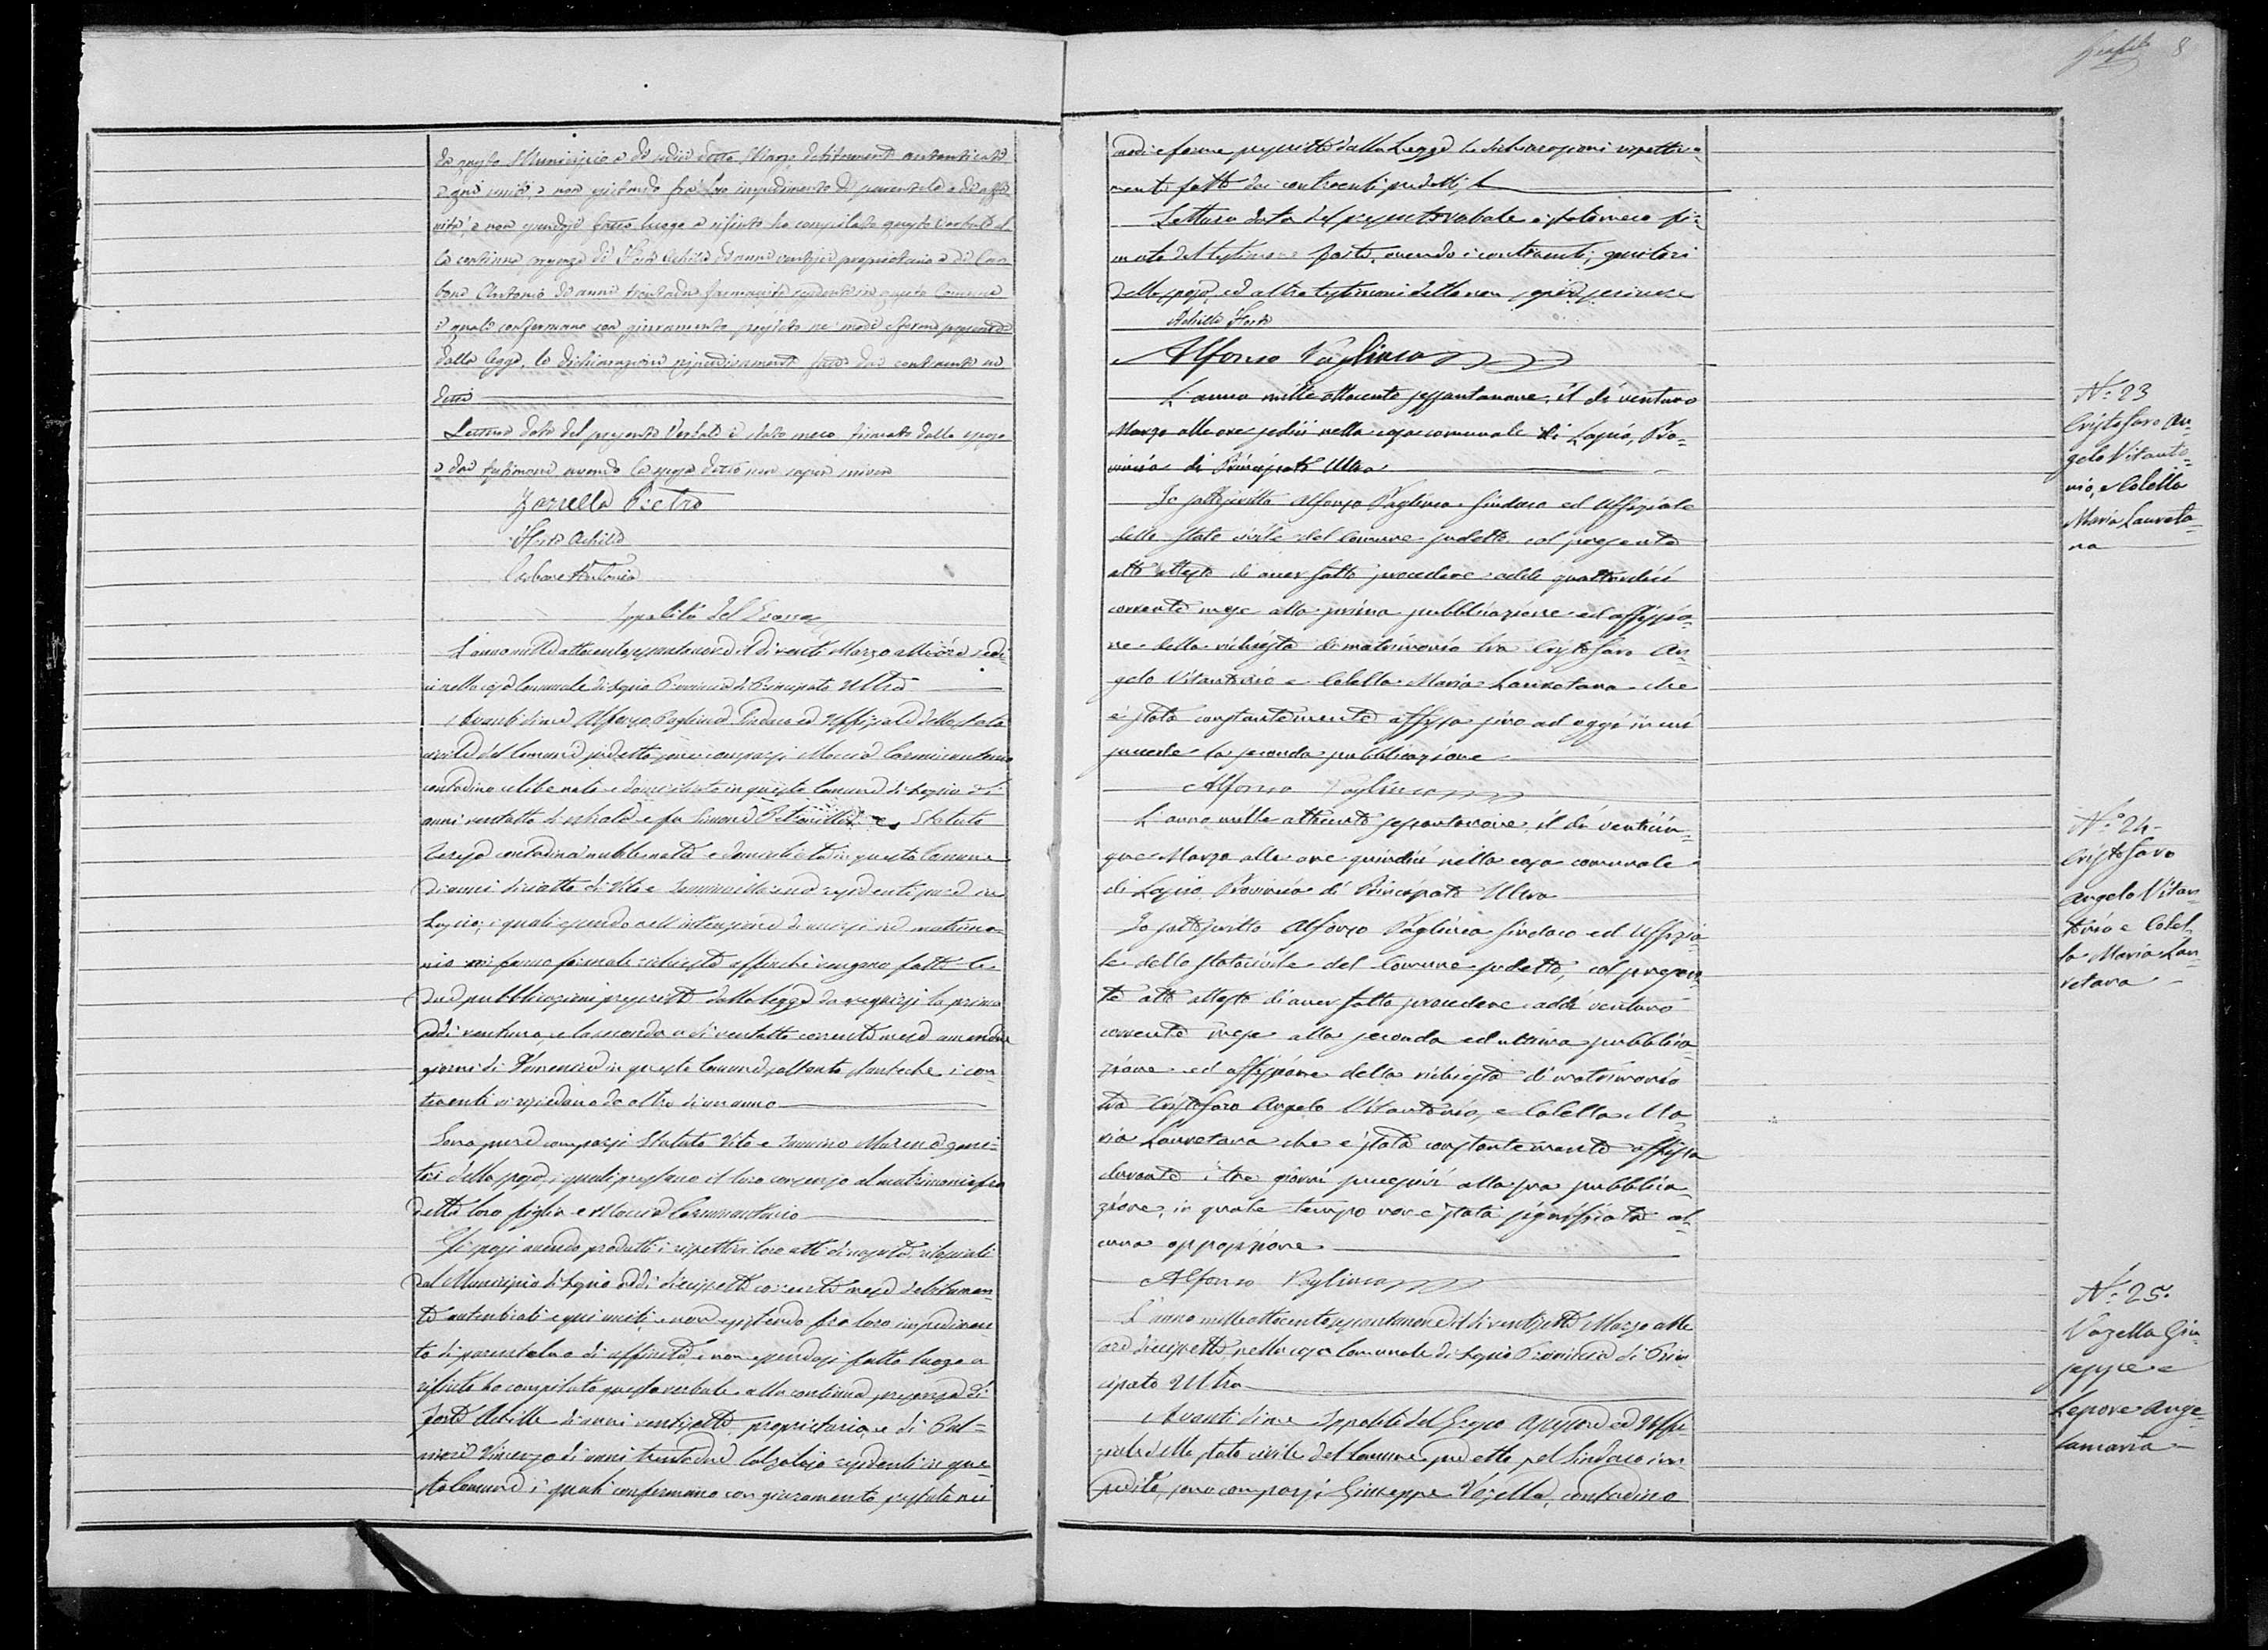 da questo Municipio a dì sedici detto Marzo debitamente autenticati,
e qui uniti, e non esistendo fra loro impedimento di parentela o di affi-
nità, e non essendosi fatto luogo a rifiuto ho compilato questo verbale al-
la continua presenza di Forte Achille di anni ventisei proprietario e di Car-
bone Antonio di anni trentadue farmacista residenti in questo Comune
i quali confermano con giuramento prestato ne' modi e forme prescritte
dalla legge, le dichiarazioni fatte dai contraenti su-
detti
Lettura data del presente Verbale è stato meco firmato dallo sposo
e dai testimoni avendo la sposa detto non saper scrivere
Zarrella Pietro
Forte Achille
Carbone Antonio
Ippolito del Grosso
L'anno mille ottocento sessantanove il dì venti Marzo alle ore sedi-
ci nella casa Comunale di Lapio Provincia di Principato Ultra
Avanti di me Alfonso Pagliuca Sindaco ed Uffiziale dello stato
civile del Comune sudetto sono comparsi Carminantonio
contadino celibe nato e domiciliato in questo Comune di Lapio di
anni ventotto di e fu e Statuto
Teresa contadina nubile nata e domiciliata in questo Comune
di anni diciotto di Vito e residenti pure in
Lapio; i quali essendo nell'intenzione di unirsi in matrimo-
nio mi fanno formale richiesta affinchè vengano fatte le
due pubblicazioni prescritte dalla legge da eseguirsi la prima
addì ventuno, e la seconda a dì ventotto corrente mese amendue
giorni di Domenica in questo Comune soltanto stanteche i con-
traenti vi risiedono da oltre di un anno
Sono pure comparsi Statuto Vito e geni-
tori della sposa, i quali prestano il loro consenso al matrimonio fra
detta loro figlia e Carminantonio
Gli sposi avendo prodotti i rispettivi loro atti di nascita rilasciati
dal Municipio di Lapio addì diecissette corrente mese debitamen-
te autenticati e qui uniti, e non esistendo fra loro impedimen-
to di parentela o di affinità, e non essendosi fatto luogo a
rifiuto ho compilato questo verbale alla continua presenza di
Forte Achille di anni ventisette proprietario, e di
Vincenzo di anni trentadue Calzolajo residenti in que-
sto Comune i quali confermano con giuramento prestato nei
8
modi e forme prescritte dalla Legge le dichiarazioni rispettiva-
mente fatte dai contraenti predetti,
Lettura data del presente verbale è stato meco fir-
mato dal testimone Forte, avendo i contraenti, genitori
della sposa, ed altro testimone detto non saper scrivere
Achille Forte
Alfonso Pagliuca
L'anno mille ottocento sessantanove, il dì ventuno
Marzo alle ore sedici nella casa comunale di Lapio, Pro-
vincia di Principato Ultra
Io sottoscritto Alfonso Pagliuca Sindaco ed Uffiziale
dello stato civile del Comune sudetto col presente
atto attesto di aver fatto procedere addì quattordici
corrente mese alla prima pubblicazione ed affissio-
ne della richiesta di matrimonio tra Cristofaro An-
gelo Vitantonio e Colella Maria Lauretana che
è stata constantemente affissa sino ad oggi in cui
succede la seconda pubblicazione
Alfonso Pagliuca
L'anno mille ottocento sessantanove, il dì venticin-
que Marzo alle ore quindici nella casa comunale
di Lapio Provincia di Principato Ultra
Io sottoscritto Alfonso Pagliuca Sindaco ed Uffizia-
le dello stato civile del Comune sudetto, col presen-
te atto attesto di aver fatto procedere addì ventuno
corrente mese alla seconda ed ultima pubblica-
zione ed affissione della richiesta di matrimonio
tra Cristofaro Angelo Vitantonio, e Colella Ma-
ria Lauretana che è stata constantemente affissa
durante i tre giorni successivi alla sua pubblica-
zione, in quale tempo non è stata significata al-
cuna opposizione
Alfonso Pagliuca
L'anno mille ottocento sessantanove il dì ventisette Marzo alle
ore diecissette, nella casa Comunale di Lapio Provincia di Prin-
cipato Ultra
Avanti di me Ippolito del Grosso Assessore ed Uffi-
ziale dello stato civile del Comune predetto pel Sindaco im-
pedito, sono comparsi Giuseppe Vozella, contadino
N.° 23
Cristofaro An-
gelo Vitanto-
nio, e Colella
Maria Laureta-
na
N.° 24-
Cristofaro
Angelo Vitan-
tonio e Colel-
la Maria Lau-
retana
N.° 25.
Vozella Giu-
seppe e
Lepore Ange-
lamaria